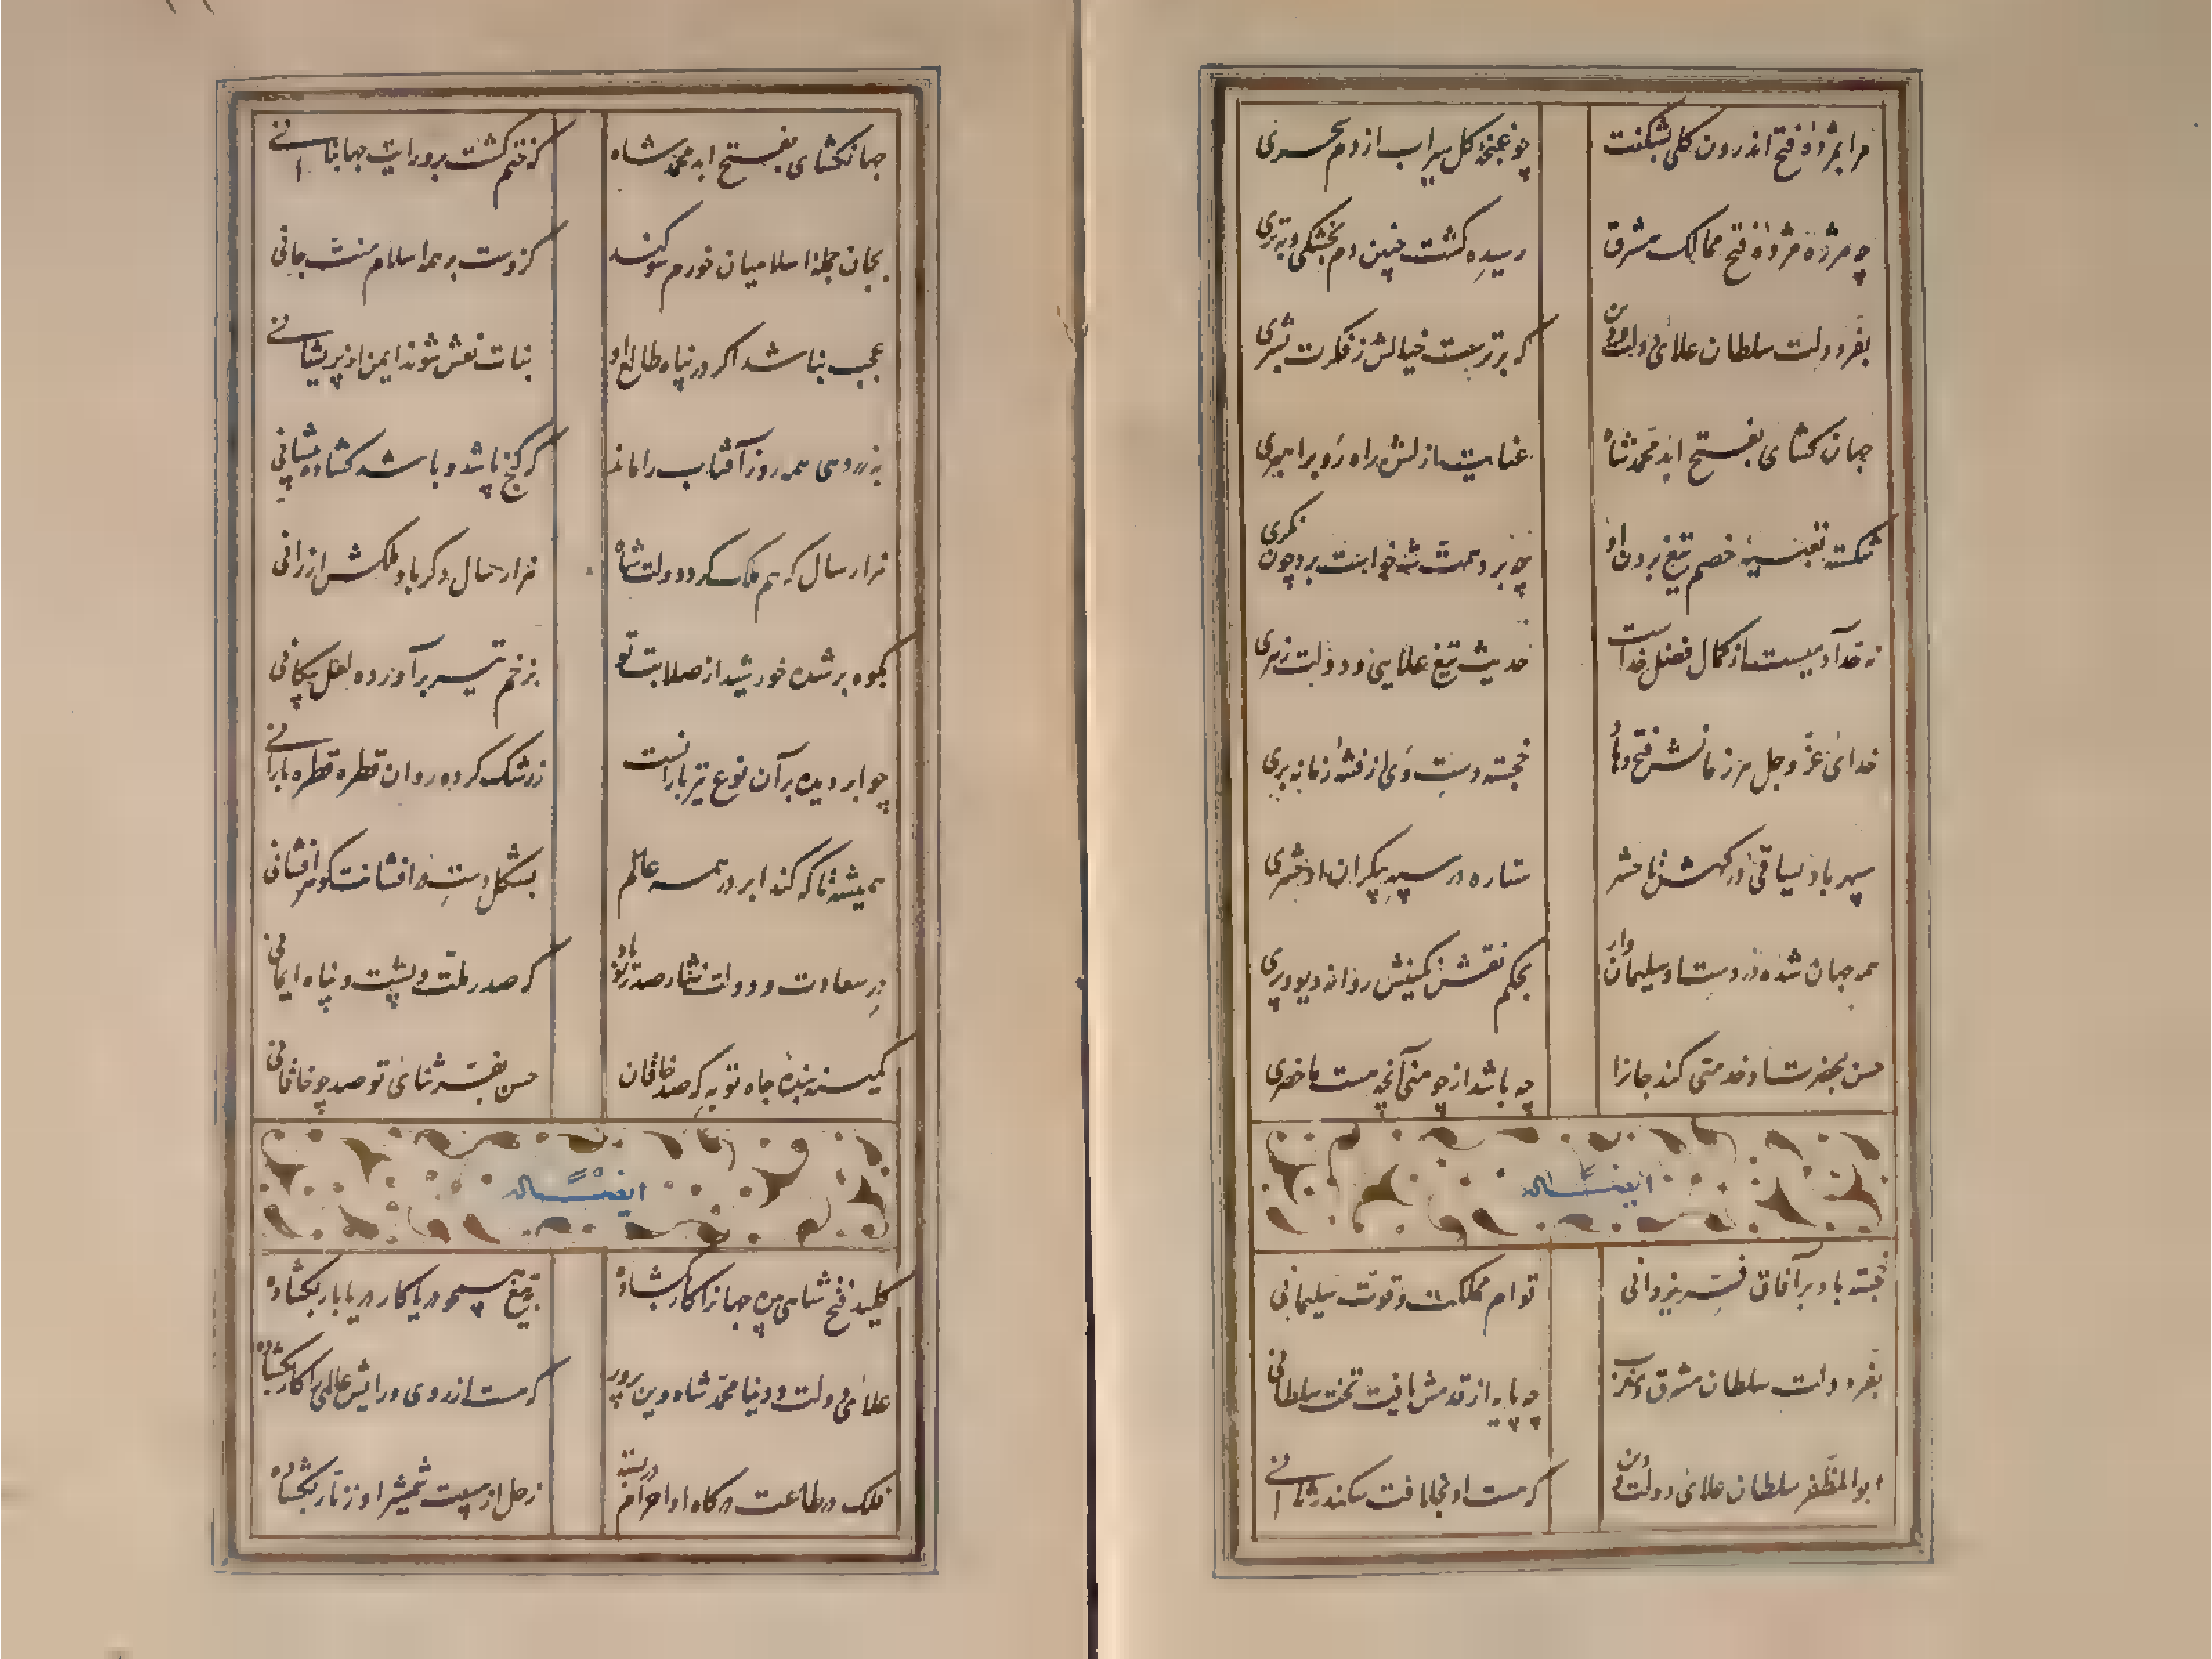 مرا بمژدهٔ فتح اندرون گلی بشکفت
چو غنچهٔ گل سیراب از دم سحری
چه مژده مژدهٔ فتح ممالک مشرق
رسیده گشت چنین دم بخشکی و بتری
بفر دولت سلطان علای دولت و دین
که برترست خیالش ز فکرت بشری
جهان کشای بفتح ابد محمد شاه
عنایت ازلش راه رو براهبری
شکسته سینهٔ خصم تیغ او
خدای عز و جل هر زمانش فتح دهاد
خجسته دست وی از فتنهٔ زمانه بری
سپهر باد
ستاره در سپه بیکران او حشری
همه جهان شده در دست او سلیمان وار
بحکم نقش نگینش روانه دیو و پری
حسن بحضرت او خدمتی کند جانرا
چه باشد از چو منی آنچه هست ماحضری
ایضاً له
خجسته باد بر آفاق فر یزدانی
قوام مملکت و قوت سلیمانی
بفر دولت سلطان مشرق و مغرب
چه پایه از قدمش یافت تخت سلطانی
ابوالمظفر سلطان علای دولت و دین
که هست او بخلافت سکندر ثانی
جهانکشای بفتح ابد محمد شاه
که ختم گشت برو رایت جهانبانی
بجان جملهٔ اسلامیان خورم سوگند
کزوست بر همه اسلام منت جانی
عجب نباشد اگر در پناه طالع او
بنات نعش شوند ایمن از پریشانی
همه روز آفتاب را ماند
که گنج پاشد و باشد گشاده پیشانی
هزار سال که هم ملک کرد و دولت شاه
هزار سال دگر باد ملکش ارزانی
بکوه بر شده خورشید از صلابت تو
بزخم تیر برآورده لعل پیکانی
چو ابر دیده بر آن نوع تیر بارانست
ز رشک کرده روان قطره قطره بارانی
همیشه تا که کند ابر در همه عالم
بشکل دست در افشانت گوهر افشانی
در سعادت و دولت نثار صدر تو باد
که صدر ملت و پشت و پناه ایمانی
کمینه بندهٔ جاه تو به که صد خاقان
حسن بقصهٔ ثنای تو صد چو خاقانی
ایضاً له
کلید فتح شاهی بین جهانرا کار بگشاده
علای دولت و دنیا محمد شاه دین پرور
که هست از روی و رایش عالمی را کار بگشاده
فلک در طاعت درگاه او احرام در بسته
زحل از هیبت شمشیر او زنار بگشاده